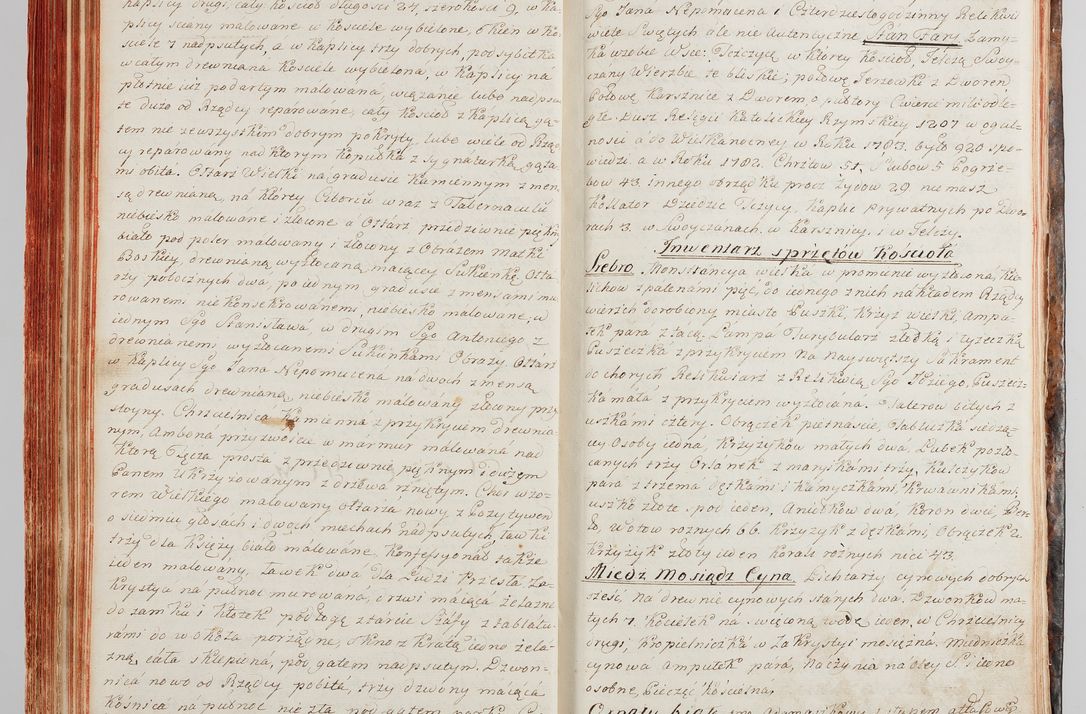 kaplicy drugi, cały kościoł długości 24, szerokości 9, w ka-
plicy sciany malowane w kościele wybielone, okien w ko-
sciele 7 nadpsutych, a w kaplicy trzy dobrych, podsybitka
w całym drewniana kościele wybielona, w kaplicy na
płotnie iuż podartym malowana, wiązanie lubo nadpsu-
te dużo od Rządcy reparowane, cały kościoł z kaplicą gą-
tem nie zewszystkim dobrym pokryty, lubo wiele od Rząd-
cy reparowany nad ktorym kopułka z sygnaturką gąta-
mi obita. Ołtarz Wielki na gradusie kamiennym z men-
są drewnianą, na ktorey Cyborium wraz z Tabernaculum
niebiesko malowane i złocone a Ołtarz przedziwnie pięknie
biało pod poler malowany i złocony z Obrazem Matki
Boskiey, drewnianą wyzłacaną maiącey Sukienkę Ołta-
rzy pobocznych dwa, po iednym gradusie z mensami mu-
rowanemi nie konsekrowanemi, niebiesko malowane, w
iednym Sgo Stanisława, w drugim Sgo Antoniego z
drewnianemi wyzłacanemi Sukienkami Obrazy. Ołtarz
w kaplicy Sgo Jana Nepomucena na dwoch z mensą
gradusach drewnianą, niebiesko malowany złocony przy-
stoyny. Chrzcielnica kamienna z przykryciem drewnia-
nym, Ambona przyzwoicie w marmur malowana nad
ktorą Tęcza prosta z przedziwnie pięknym i dużym
Panem Ukrzyżowanym z drzewa rzniętym. Chor wzo-
rem Wielkiego malowany ołtarza nowy z Pozytywem
o siedmiu głosach i dwoch miechach nadpsutych, ławki
trzy dla księży biało malowane, konfessyonał także
ieden malowany, ławek dwa dla Ludzi krzesła Za-
krystya na pułnoc murowana, drzwi maiąca żelazne
do zamku i kłotek podłogę z tarcic Szafy z tablatu-
rami do wokoła porządne, okno z kratą iedno żela-
zną, cała sklepiona, pod gątem nadpsutym. Dzwon-
nica nowo od Rządcy pobita, trzy dzwony maiąca
kośnica na pułnoc nie zła pod gątem
Sgo Jana Nepomucena i Czterdziestogodzinny Relikwii
wiele Swiętych ale nie autentyczne Stan Fary Zamy-
ka w sobie Wsie: Tczycę w ktorey kościoł, Jelczą Swoy-
czany Wierzbie te bliskie; połowę Jerzowki z Dworem
Połowę Karsznice z Dworem, o pułtory Cwierci mili odle-
głe. Dusz Religii katolickiey Rzymskiey 1207 w ogul-
nosci a do Wielkanocney w Roku 1783. było 920 spo-
wiedzi. a w Roku 1782. Chrztow 51, Slubow 5 Pogrze-
bow 43. innego obrządku procz żydow 29 nie masz
kollator Dziedzic Tczycy, kaplic prywatnych po Dwo-
rach 3. w Swoyczanach, w Karsznicy, i w Jelczy.
Inwentarz sprzętow kościoła
Srebro. Monstrancya wielka w promienie wyzłacana, kie-
lichow z patenami pięć, do iednego z nich nakładem Rządcy
wierzch dorobiony miasto Puszki, krzyż wielki Ampu-
łek para z tacą. Lampa Turybularz z łodką i łyżeczką
Puszeczka z przykryciem na nayswiętszy Sakrament
do chorych Relikwiarz z Relikwią Sgo Idziego, Puszecz-
ka mała z przykryciem wyzłacana. Talerow bitych z
uszkami cztery. Obrączek pietnascie, Tabliczka siedzą-
cey Osoby iedna, krzyżykow małych dwa Lubek pozło-
canych trzy Orsanek z manyszkami trzy, kulczykow
para z trzema dętkami i kamyczkami, krwawnikami,
uszko złote. pod ieden, Aniołkow dwa, koron dwie, Ber-
ło, wotow roznych 66. krzyżyk z dętkami, Obrączek 2.
krzyżyk złoty ieden korali rożnych nici 43.
Miedz Mosiądz Cyna. Lichtarzy cynowych dobrych
sześć, na drewnie cynowych starych dwa. Dzwonkow ma-
łych 7. kociełek na swięconą wodę ieden, w Chrzcielnicy
drugi, kropielniczka w Zakrystyi mosiężna. Miednica
cynowa ampułek para, naczynia na Oley S.
osobne, Pieczęć kościelna,